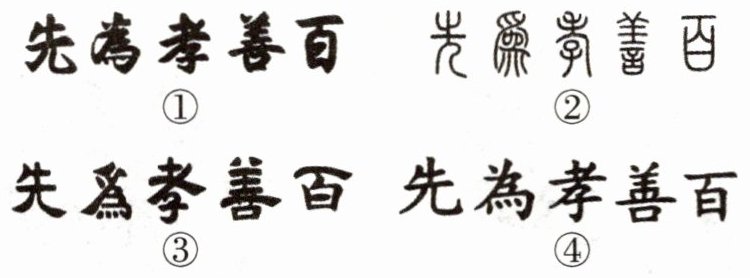 先為孝善百 先為孝善百
① ②
先爲孝善百 先為孝善百
③ ④